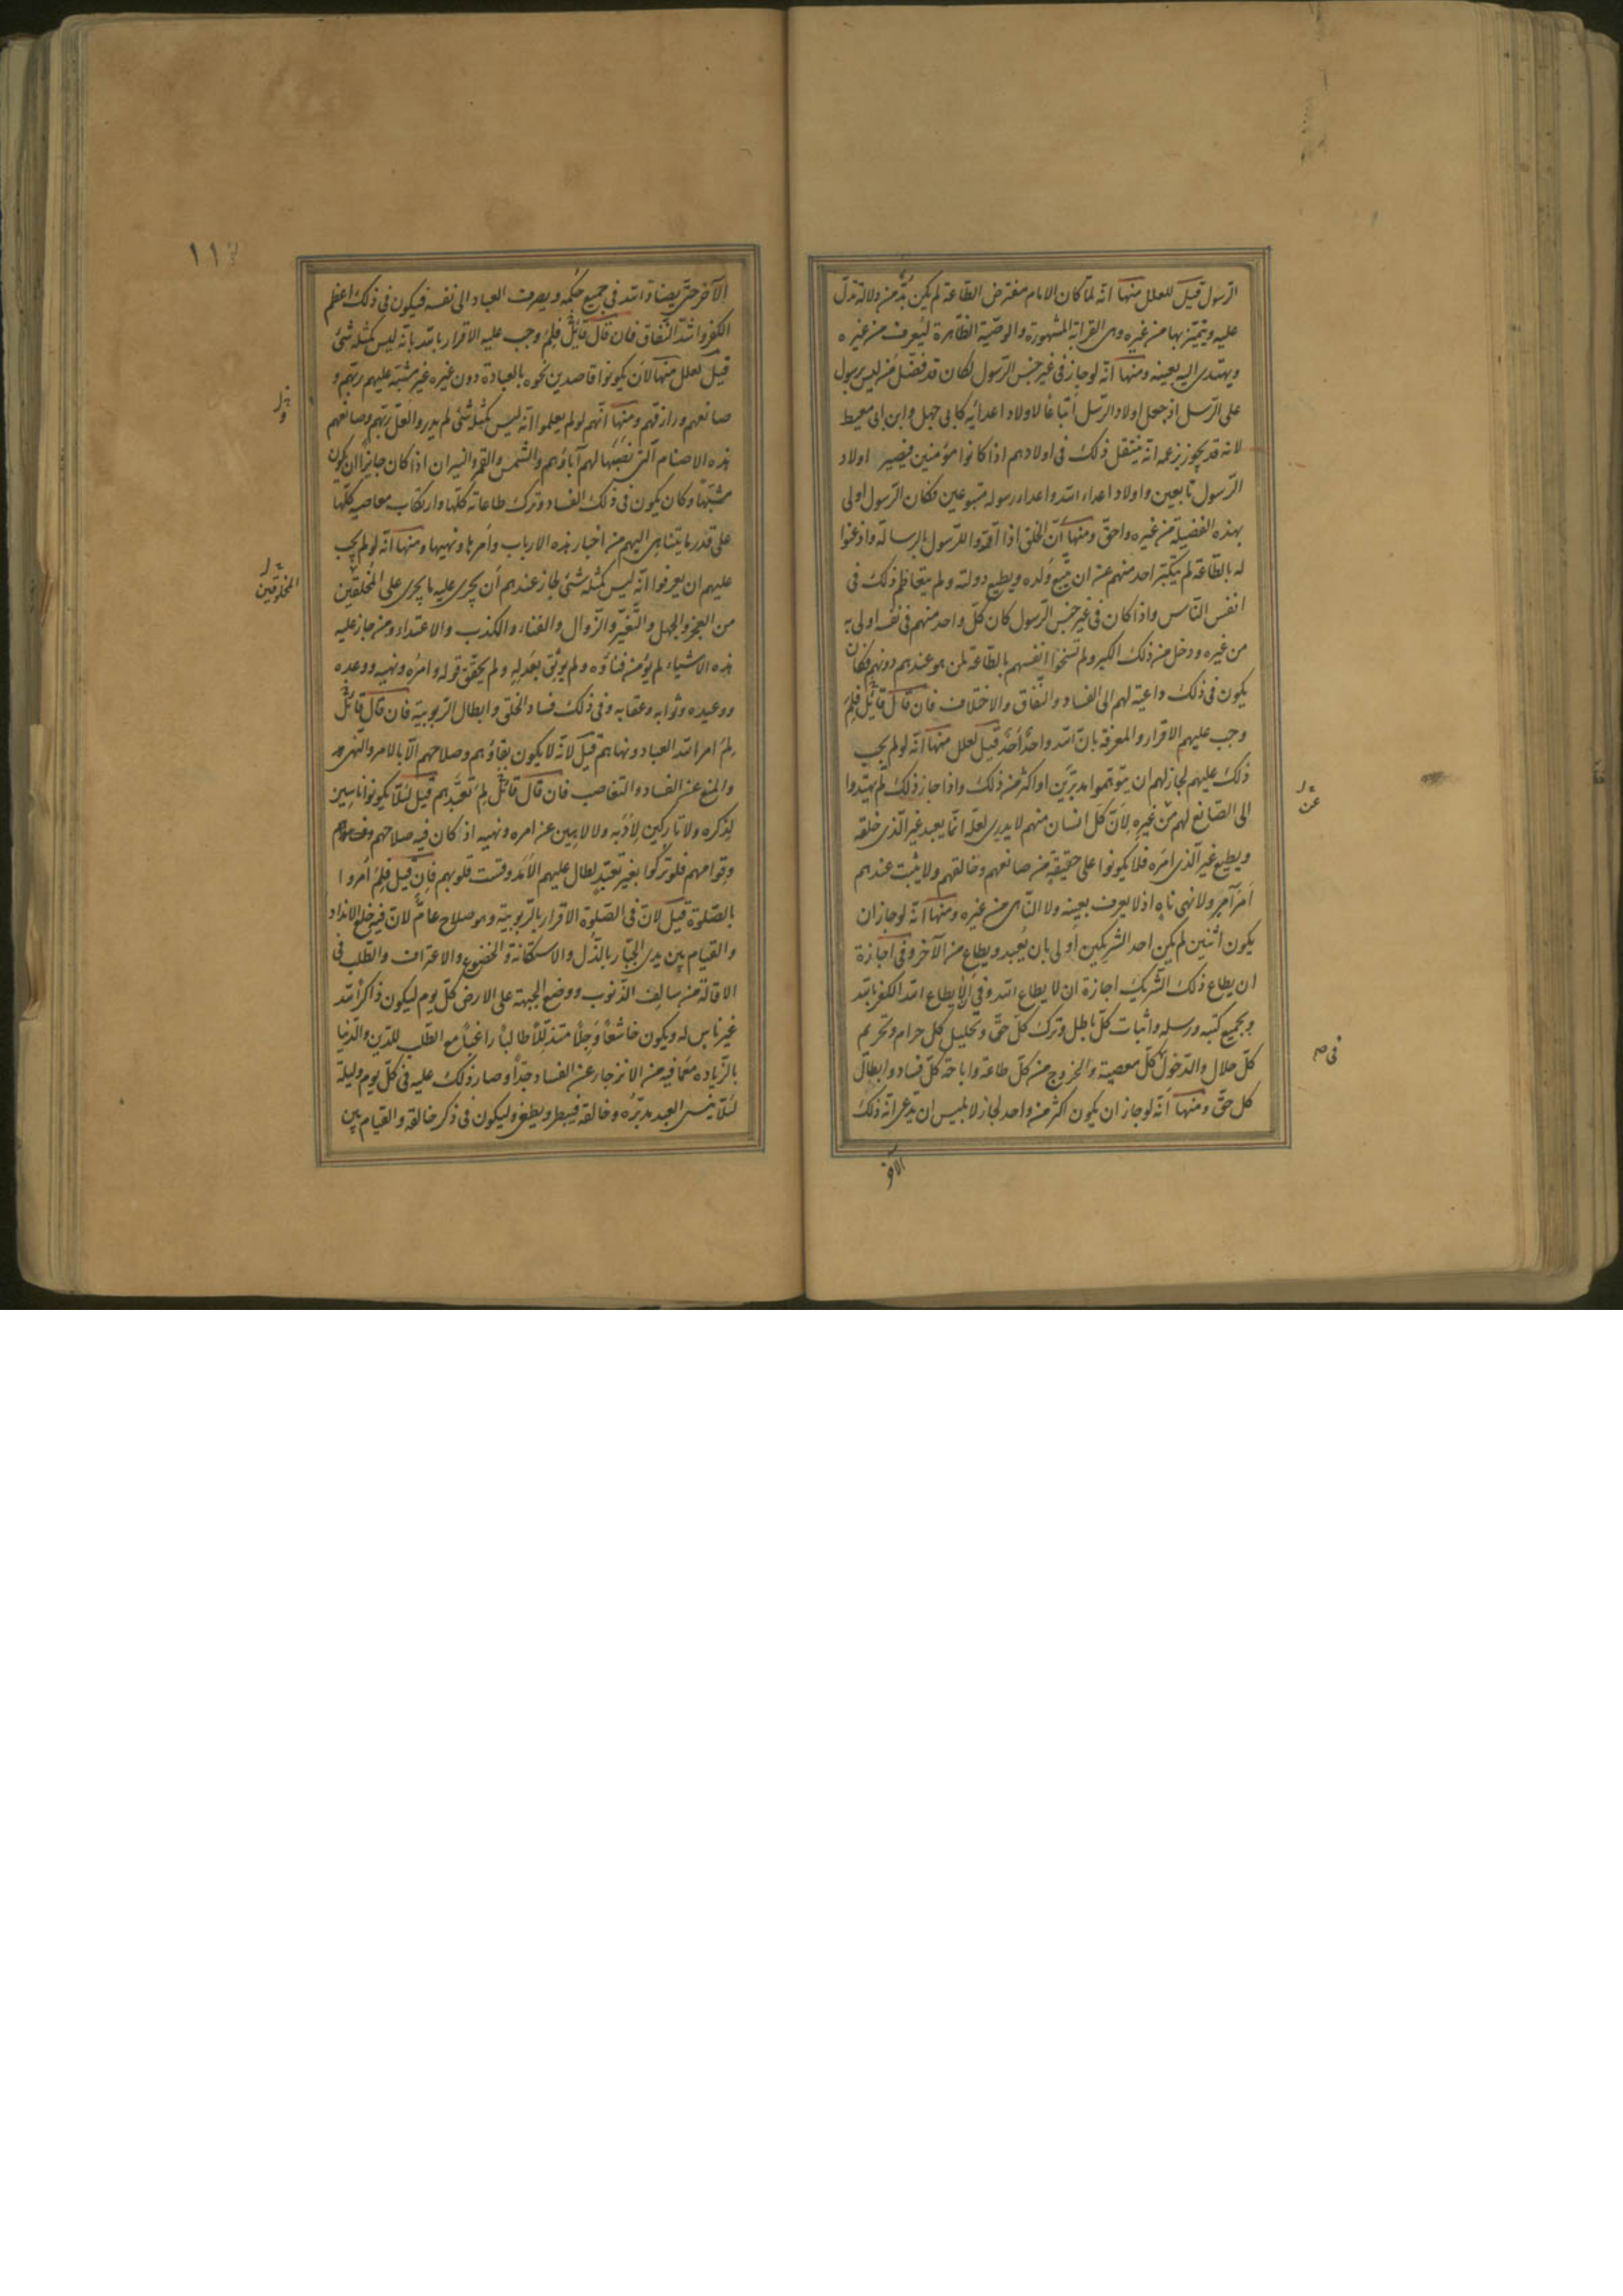 الرسول قيل لعلل منها انه لما كان الامام مفترض الطاعة لم يكن بد من دلالة تدل
عليه ويتميز بها من غيره وهى القرابة المشهورة والوصية الظاهرة ليعرف من غيره
ويهتدى اليه بعينه ومنها انه لو جاز فى غير جنس الرسول لكان قد فضل من ليس برسول
على الرسل اذ جعل اولاد الرسل أتباعًا لاولاد اعدائه كابى جهل وابن ابى معيط
لانه قد يجوز بزعمه انه ينتقل ذلك فى اولادهم اذا كانوا مؤمنين فيصير اولاد
الرسول تابعين واولاد اعداء الله واعداء رسوله متبوعين فكان الرسول اولى
بهذه الفضيلة من غيره واحق ومنها أن الخلق اذا أقروا للرسول بالرسالة واذعنوا
له بالطاعة لم يتكبر احد منهم عن ان يتبع ولده ويطيع دولته ولم يتعاظم ذلك فى
انفس الناس واذا كان فى غير جنس الرسول كان كل واحد منهم فى نفسه اولى به
من غيره ودخل من ذلك الكبر ولم تسخوا انفسهم بالطاعة لمن هو عندهم دونهم فكان
يكون فى ذلك داعية لهم الى الفساد والنفاق والاختلاف فان قال قائل فلم
وجب عليهم الاقرار والمعرفة بان الله واحد أحد قيل لعلل منها انه لو لم يجب
ذلك عليهم لجاز لهم ان يتوهموا مدبرين او اكثر من ذلك واذا جاز ذلك لم يهتدوا
الى الصانع لهم من غيره لان كل انسان منهم لا يدرى لعله انما يعبد غير الذى خلقه
عن
ويطيع غير الذى امره فلا يكونوا على حقيقة من صانعهم وخالقهم ولا يثبت عندهم
أمر آمر ولا نهى ناه اذ لا يعرف بعينه ولا الناهى من غيره ومنها انه لو جاز ان
يكون اثنين لم يكن احد الشريكين أولى بان يعبد ويطاع من الآخر وفى اجازة
ان يطاع ذلك الشريك اجازة ان لا يطاع الله وفى ألا يطاع الله الكفر بالله
وبجميع كتبه ورسله واثبات كل باطل وترك كل حق وتحليل كل حرام وتحريم
كل حلال والدخول كل معصية والخروج من كل طاعة واباحة كل فساد وابطال
فى
كل حق ومنها أنه لو جاز ان يكون اكثر من واحد لجاز لابليس ان يدعى انه ذلك
الآخر
١١
الآخر حتى يضاد الله فى جميع حكمه ويصرف العباد الى نفسه فيكون فى ذلك اعظم
الكفر واشد النفاق فان قال قائل فلم وجب عليه الاقرار بالله بانه ليس كمثله شئ
قيل لعلل منها لأن يكونوا قاصدين نحوه بالعبادة دون غيره غير مشتبه عليهم ربهم و
صانعهم ورازقهم ومنها انهم لو لم يعلموا انه ليس كمثله شئ لم يدروا لعل ربهم وصانعهم
هذه الاصنام التى نصبها لهم آباؤهم والشمس والقمر والنيران اذا كان جايزا ان يكون
مشبها وكان يكون فى ذلك الفساد وترك طاعاته كلها وارتكاب معاصيه كلها
على قدر ما يتناهى اليهم من اخبار هذه الارباب وأمرها ونهيها ومنها انه لو لم يجب
عليهم ان يعرفوا انه ليس كمثله شئ لجاز عندهم أن يجرى عليه ما يجرى على المخلوقين
المخلوقين
من العجز والجهل والتغير والزوال والفناء والكذب والاعتداء ومن جاز عليه
هذه الاشياء لم يؤمن فناؤه ولم يوثق بعدله ولم يحقق قوله وامره ونهيه ووعده
ووعيده وثوابه وعقابه وفى ذلك فساد الخلق وابطال الربوبية فان قال قائل
لم امر الله العباد ونهاهم قيل لانه لا يكون بقاؤهم وصلاحهم الا بالامر والنهى
والمنع عن الفساد والتغاصب فان قال قائل لم تعبدهم قيل لئلا يكونوا ناسين
لذكره ولا تاركين لأدبه ولا لاهين عن امره ونهيه اذ كان فيه صلاحهم
وقوامهم فلو تركوا بغير تعبد لطال عليهم الأمد وقست قلوبهم فان قيل فلم أمروا
بالصلوة قيل لان فى الصلوة الاقرار بالربوبية وهو صلاح عام لان فيه خلع الانداد
والقيام بين يدى الجبار بالذل والاستكانة والخضوع والاعتراف والطلب فى
الاقالة من سالف الذنوب ووضع الجبهة على الارض كل يوم ليكون ذاكرا لله
غير ناس له ويكون خاشعا وجلا متذللا طالبا راغبا مع الطلب للدين والدنيا
بالزيادة مع ما فيه من الانزجار عن الفساد جدا وصار ذلك عليه فى كل يوم وليلة
لئلا ينسى العبد مدبره وخالقه فيبطر ويطغى وليكون فى ذكر خالقه والقيام بين